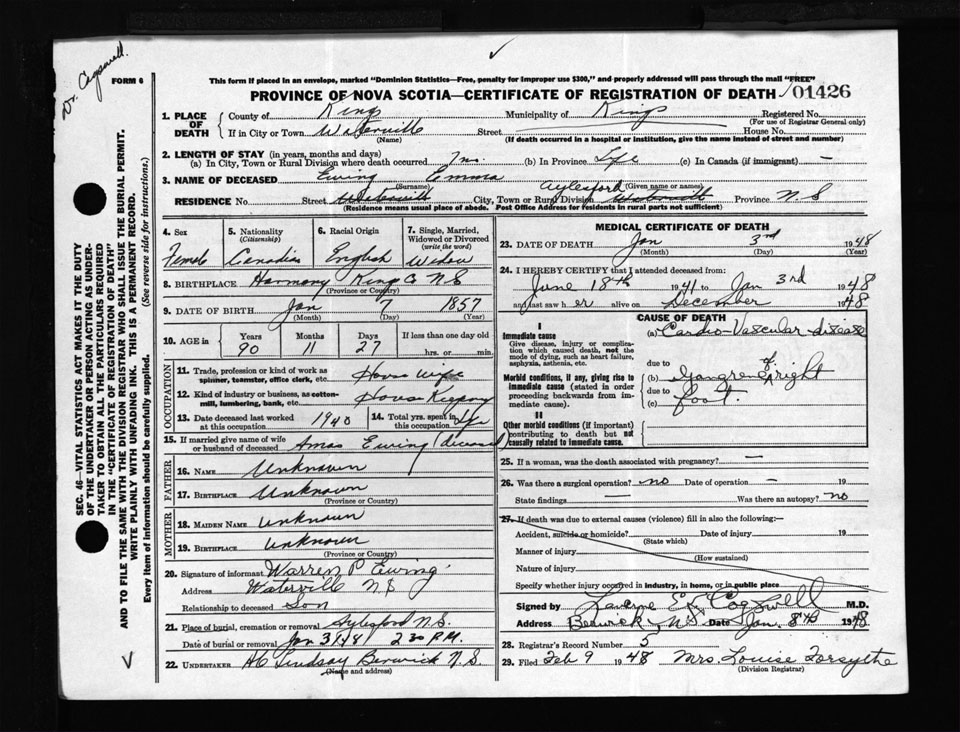 Dr. Cogswell.
FORM 6
SEC. 46—VITAL STATISTICS ACT MAKES IT THE DUTY
OF THE UNDERTAKER OR PERSON ACTING AS UNDER-
TAKER TO OBTAIN ALL THE PARTICULARS REQUIRED
IN THE "CERTIFICATE OF REGISTRATION OF DEATH"
AND TO FILE THE SAME WITH THE DIVISION REGISTRAR WHO SHALL ISSUE THE BURIAL PERMIT.
WRITE PLAINLY WITH UNFADING INK. THIS IS A PERMANENT RECORD.
Every item of Information should be carefully supplied. (See reverse side for instructions.)
This form if placed in an envelope, marked "Dominion Statistics—Free, penalty for improper use $300," and properly addressed will pass through the mail "FREE"
PROVINCE OF NOVA SCOTIA—CERTIFICATE OF REGISTRATION OF DEATH 01426
1. PLACE OF DEATH County of Kings Municipality of Kings Registered No.
(For use of Registrar General only)
If in City or Town Waterville Street House No.
(Name) (If death occurred in a hospital or institution, give the name instead of street and number)
2. LENGTH OF STAY (in years, months and days)
(a) In City, Town or Rural Division where death occurred (b) In Province Life (c) In Canada (if immigrant) —
3. NAME OF DECEASED Ewing Emma
(Surname) (Given name or names)
Aylesford
RESIDENCE No. Street Waterville City, Town or Rural Division Waterville Province N S
(Residence means usual place of abode. Post Office Address for residents in rural parts not sufficient)
4. Sex 5. Nationality (Citizenship) 6. Racial Origin 7. Single, Married, Widowed or Divorced (write the word)
Female Canadian English Widow
8. BIRTHPLACE Harmony Kings Co N S
(Province or Country)
9. DATE OF BIRTH Jan 7 1857
(Month) (Day) (Year)
10. AGE in Years Months Days If less than one day
90 11 27 hrs. or min.
OCCUPATION
11. Trade, profession or kind of work as spinner, teamster, office clerk, etc. House wife
12. Kind of industry or business, as cotton-mill, lumbering, bank, etc. House Keeping
13. Date deceased last worked at this occupation 1940 14. Total yrs. spent in this occupation Life
15. If married give name of wife or husband of deceased Amos Ewing deceased
FATHER
16. NAME Unknown
17. BIRTHPLACE Unknown
(Province or Country)
MOTHER
18. MAIDEN NAME Unknown
19. BIRTHPLACE Unknown
(Province or Country)
20. Signature of informant Warren P Ewing
Address Waterville N S
Relationship to deceased Son
21. Place of burial, cremation or removal Aylesford N.S.
Date of burial or removal Jan 2 30 P.M.
22. UNDERTAKER Lindsay Berwick N.S.
(Name and address)
MEDICAL CERTIFICATE OF DEATH
23. DATE OF DEATH Jan 3rd 1948
(Month) (Day) (Year)
24. I HEREBY CERTIFY that I attended deceased from:
June 18th 1941 to Jan 3rd 1948
and last saw her alive on December 1948
CAUSE OF DEATH
I
Immediate cause
Give disease, injury or complication which caused death, not the mode of dying, such as heart failure, asphyxia, asthenia, etc.
(a) Cardio-Vascular disease
due to
Morbid conditions, if any, giving rise to immediate cause (stated in order proceeding backwards from immediate cause).
(b) Gangrene of right
due to
(c) foot.
II
Other morbid conditions (if important) contributing to death but not causally related to immediate cause.
25. If a woman, was the death associated with pregnancy? —
26. Was there a surgical operation? no Date of operation — 19
State findings — Was there an autopsy? no
27. If death was due to external causes (violence) fill in also the following:—
Accident, suicide or homicide? Date of injury 19
(State which)
Manner of injury
(How sustained)
Nature of injury
Specify whether injury occurred in industry, in home, or in public place
Signed by Cogswell M.D.
Address Berwick, N.S. Date Jan. 8th 1948
28. Registrar's Record Number 5
29. Filed Feb 9 1948 Mrs. Louise Forsythe
(Division Registrar)